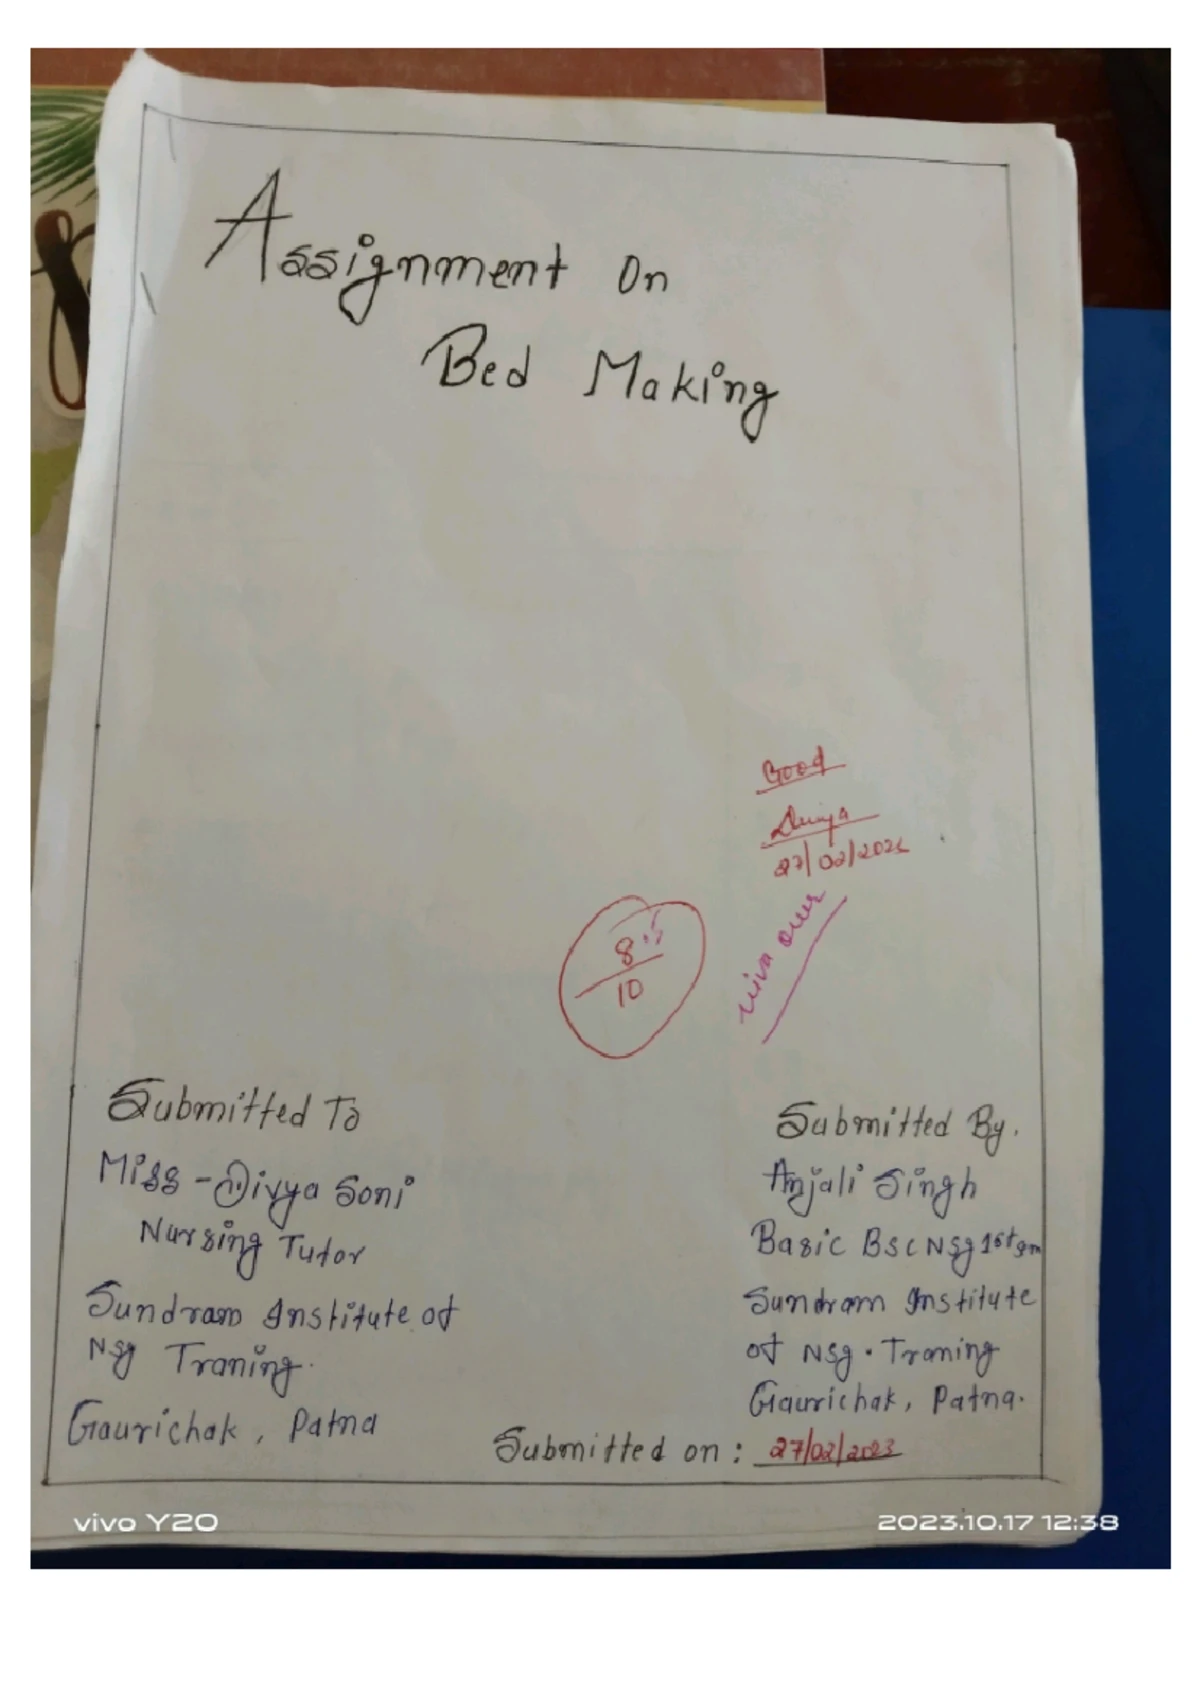 Assignment On
Bed Making
Good
Divya
27/02/202
8.5
10
viva over
Submitted To
Miss - Divya Soni
Nursing Tutor
Sundram Institute of
Nsg Traning.
Gaurichak, Patna
Submitted By.
Anjali Singh
Basic BSc Nsg 1st sm
Sundram Institute
of Nsg. Traning
Gaurichak, Patna.
Submitted on : 27/02/2023
vivo Y20
2023.10.17 12:38